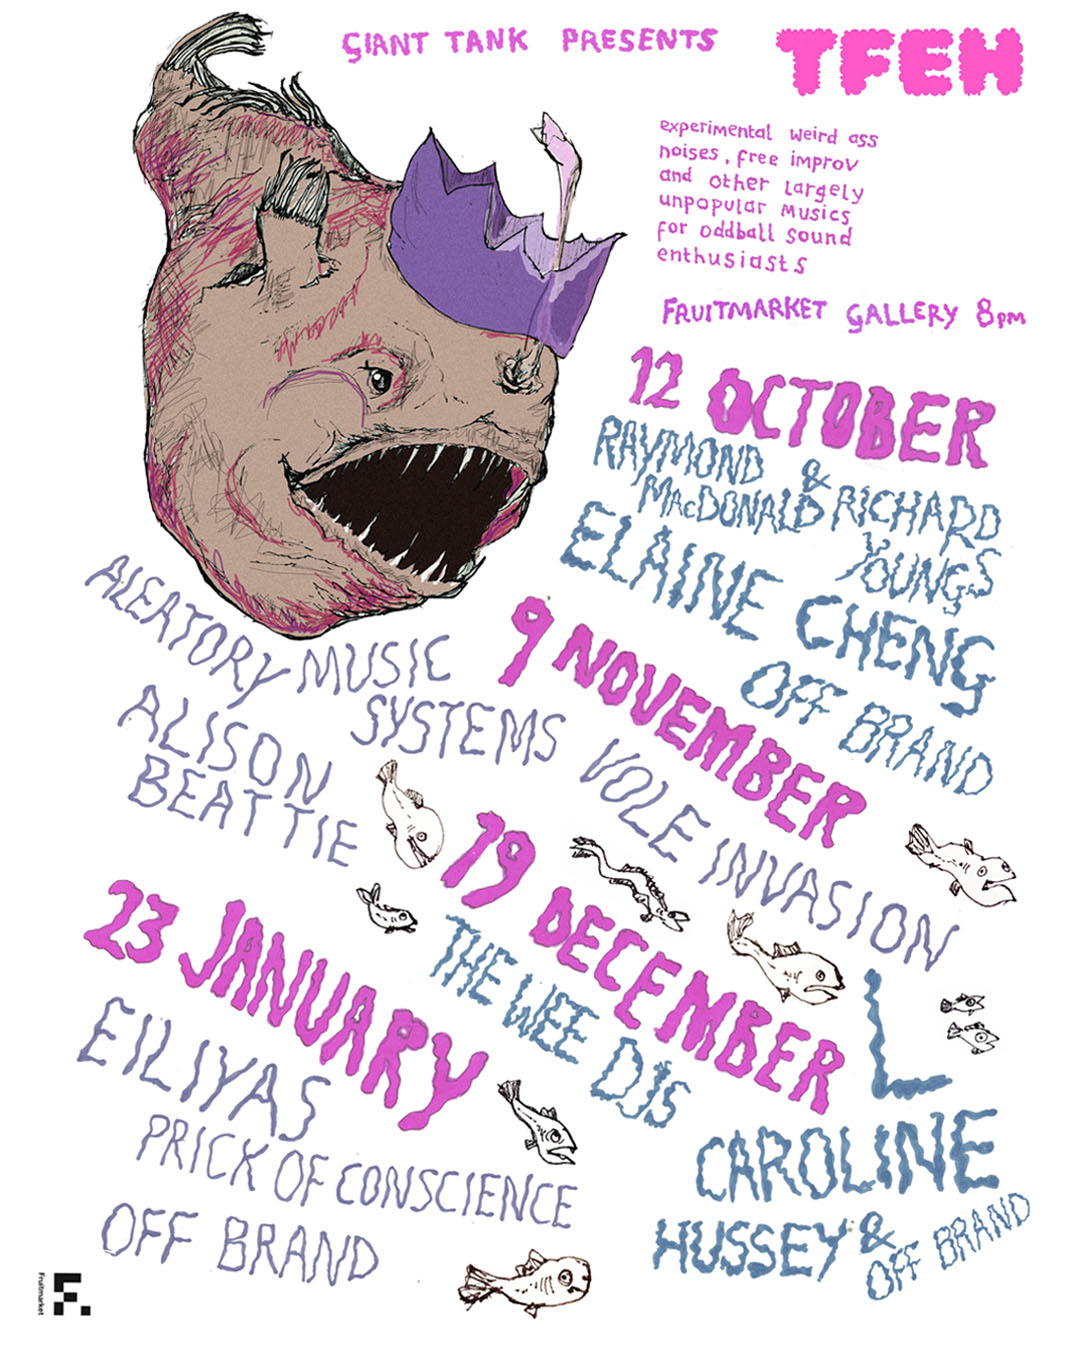 GIANT TANK PRESENTS
TFEH
experimental weird ass
noises, free improv
and other largely
unpopular musics
for oddball sound
enthusiasts
FRUITMARKET GALLERY 8pm
12 OCTOBER
RAYMOND
MACDONALD
&
RICHARD
YOUNGS
ELAINE CHENG
OFF BRAND
9 NOVEMBER
ALEATORY MUSIC
SYSTEMS
ALISON
BEATTIE
VOLE INVASION
19 DECEMBER
THE WEE DJs
L
CAROLINE
HUSSEY &
OFF BRAND
23 JANUARY
EILIYAS
PRICK OF CONSCIENCE
OFF BRAND
Fruitmarket
F.